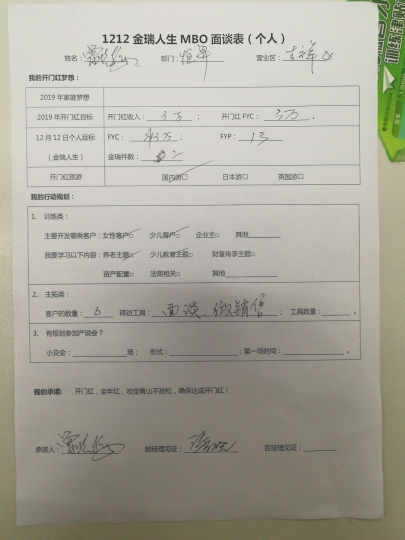 1212 金瑞人生 MBO 面谈表（个人）
姓名： 部门： 营业区：吉祥区
我的开门红梦想：
2019 年家庭梦想
2019 年开门红目标 开门红收入：3万； 开门红 FYC：3万。
12 月 12 日个人目标 FYC：万； FYP：
（金瑞人生） 金瑞件数：
开门红旅游 国内游□ 日本游□ 英国游□
我的行动规划：
1. 训练类：
主要开发哪类客户：女性客户□ 少儿客户□ 企业主□ 其他
我要学习以下内容：养老主题□ 少儿教育主题□ 财富传承主题□
资产配置□ 法商相关□ 其他
2. 主拓类：
客户的数量：6 拜访工具：面谈、微销售； 工具数量：。
3. 有规划参加产说会？
小交会：场； 形式：；第一场时间：。
我的承诺： 开门红，全年红，咬定青山不放松，确保达成开门红！
承诺人： 部经理见证： 区经理见证：